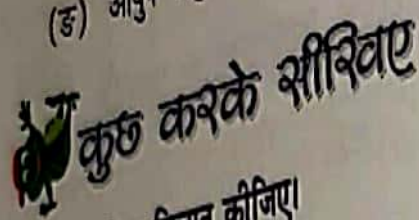 (ङ)
कुछ करके सीखिए
कीजिए।